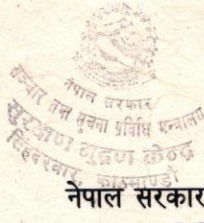 नेपाल सरकार
सञ्चार तथा सूचना प्रविधि मन्त्रालय
सुरक्षण मुद्रण केन्द्र
सिंहदरवार, काठमाण्डौ
नेपाल सरकार